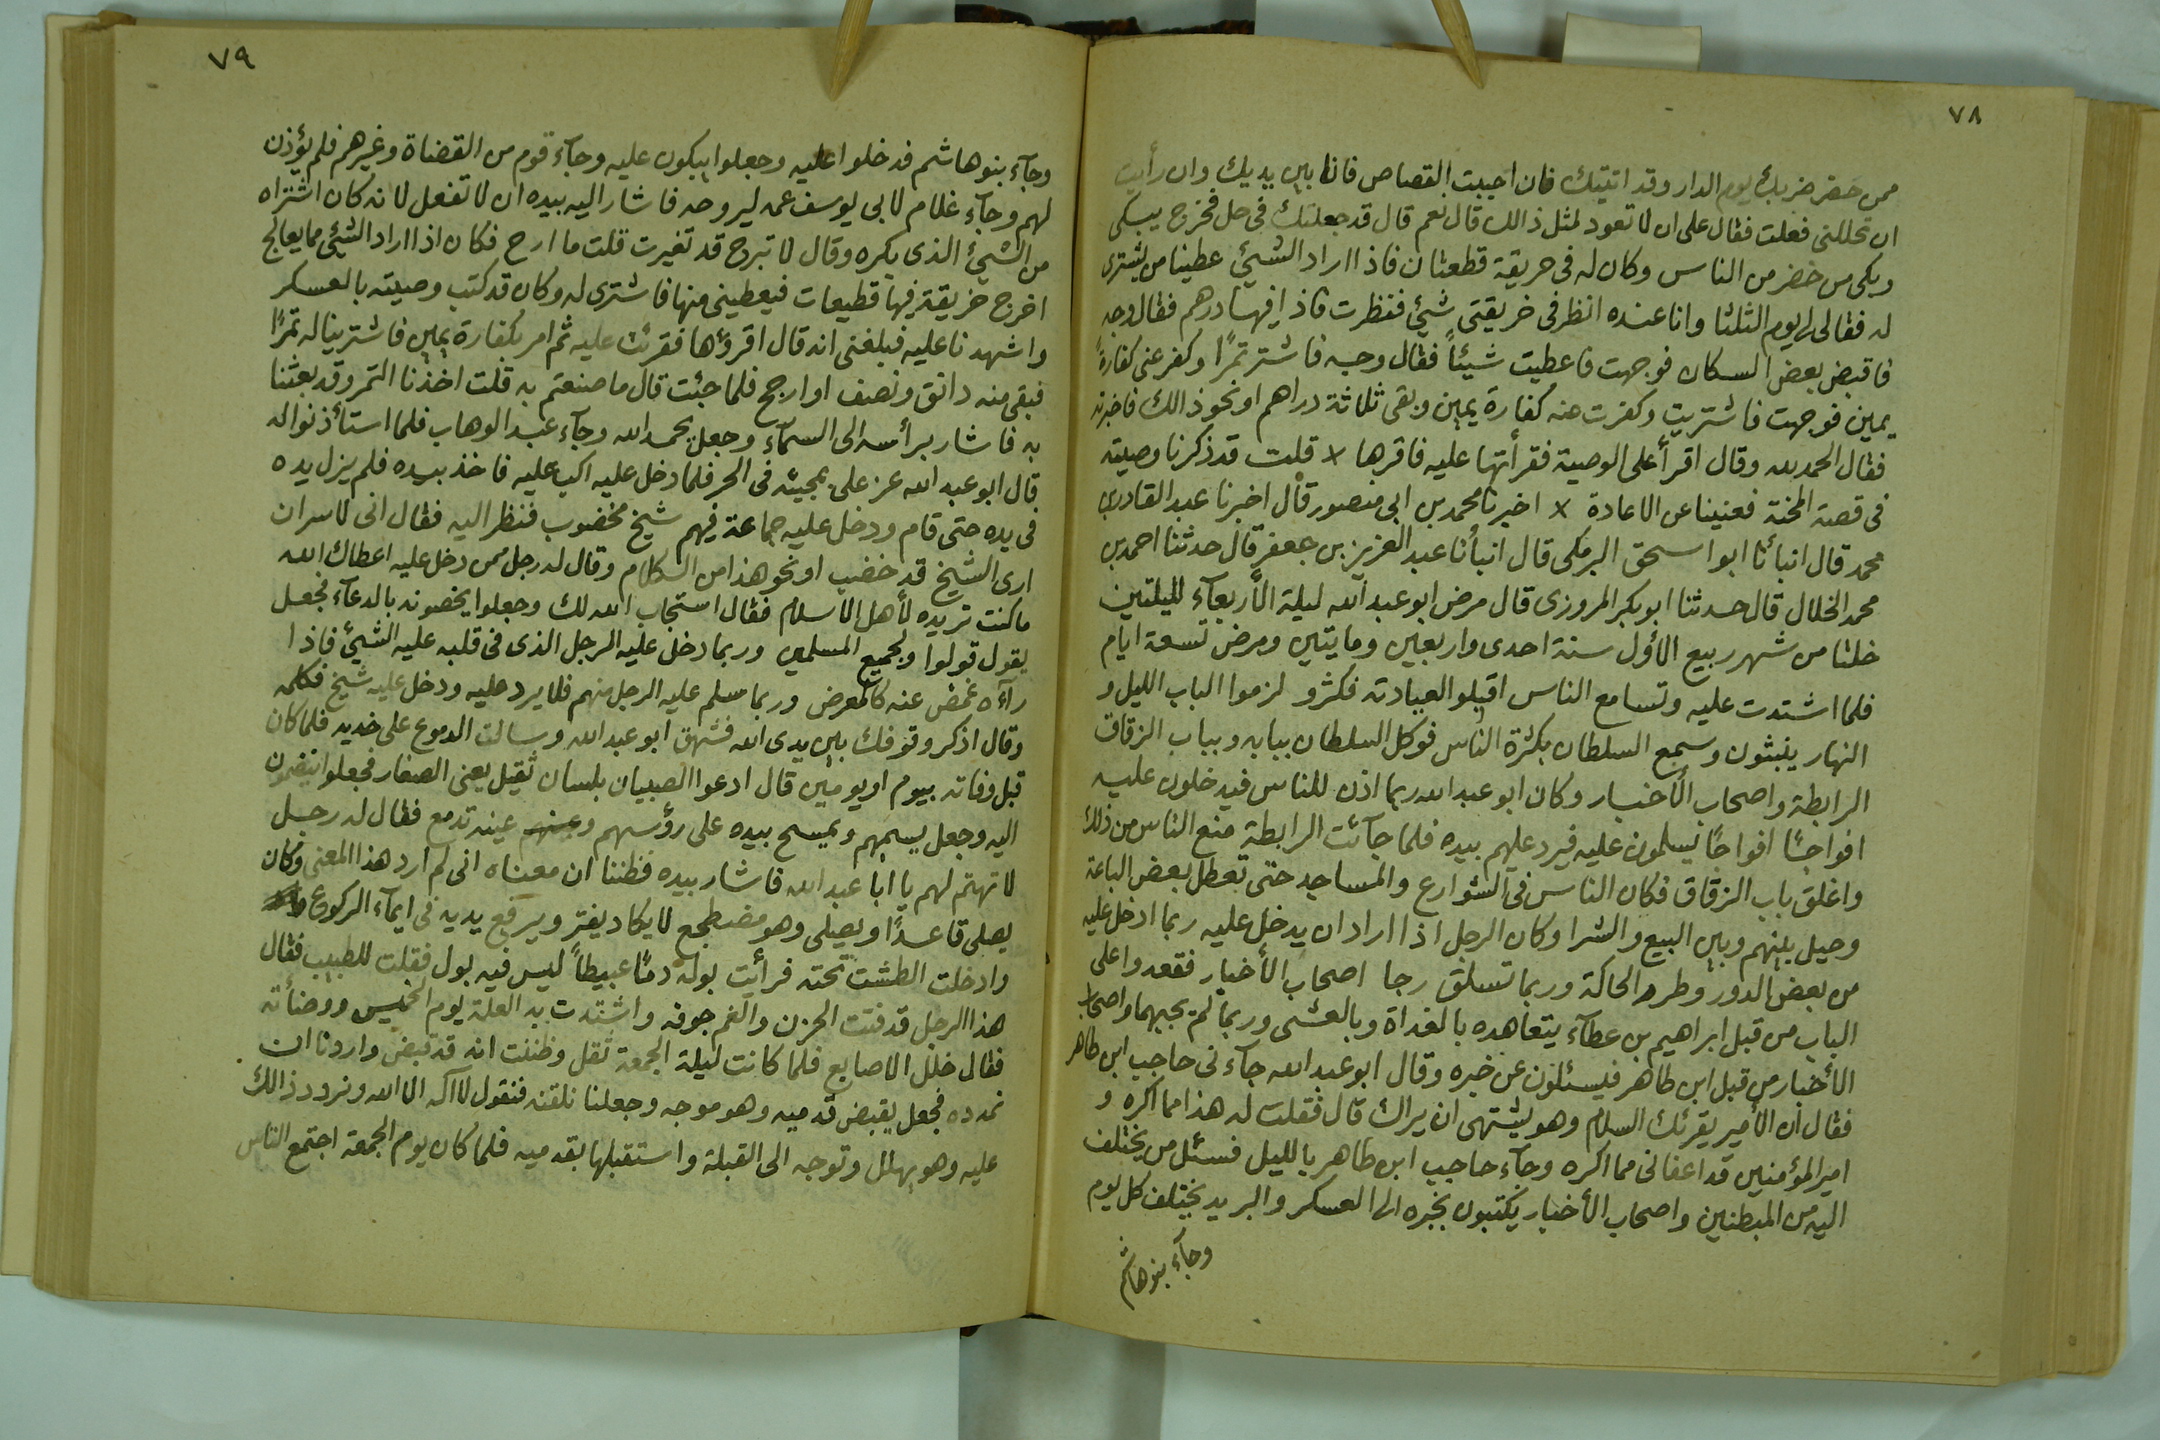 ٧٨
ممن حضر ضربك يوم الدار وقد اتيتك فان احببت القصاص فانا بين يديك وان رأيت
ان تحللنى فعلت فقال على ان لا تعود لمثل ذالك قال نعم قال قد جعلتك فى حل فخرج يبكى
وبكى من حضر من الناس وكان له فى خريقة قطعتان فاذا اراد الشيئ عطينا من يشترى
له فقال لى يوم الثلثا وانا عنده انظر فى خريقتى شيئ فنظرت فاذا فيها درهم فقال وجه
فاقبض بعض السكان فوجهت فاعطيت شيئاً فقال وجه فاشتر تمرًا وكفر عنى كفارة
يمين فوجهت فاشتريت وكفرت عنه كفارة يمين وبقى ثلاثة دراهم او نحو ذالك فاخبرته
فقال الحمد لله وقال اقرأ على الوصية فقرأتها عليه فاقرها × قلت قد ذكرنا وصيته
فى قصة المحنة فغنينا عن الاعادة × اخبرنا محمد بن ابى منصور قال اخبرنا عبد القادر بن
محمد قال انبائنا ابو اسحق البرمكى قال انبأنا عبد العزيز بن جعفر قال حدثنا احمد بن
محمد الخلال قال حدثنا ابو بكر المروزى قال مرض ابو عبد الله ليلة الأربعاء لليلتين
خلتا من شهر ربيع الأول سنة احدى واربعين ومايتين ومرض تسعة ايام
فلما اشتدت عليه وتسامع الناس اقبلو العيادته فكثرو لزموا الباب الليل و
النهار يبثون وسمع السلطان بكثرة الناس فوكل السلطان ببابه وبباب الزقاق
الرابطة واصحاب الأخبار وكان ابو عبد الله ربما اذن للناس فيدخلون عليه
افواجًا افواجًا يسلمون عليه فيرد عليهم بيده فلما جآئت الرابطة منع الناس من ذلك
واغلق باب الزقاق فكان الناس فى الشوارع والمساجد حتى تعطل بعض الباعة
وحيل بينهم وبين البيع والشرا وكان الرجل اذا اراد ان يدخل عليه ربما ادخل عليه
من بعض الدور وطرر الحاكة وربما تسلق رجا اصحاب الأخبار فقعدوا على
الباب من قبل ابراهيم بن عطآء يتعاهده بالغداة وبالعشى وربما لم يجبهما واصحاب
الأخبار من قبل ابن طاهر فيسئلون عن خبره وقال ابو عبد الله جآء نى حاجب ابن طاهر
فقال ان الأمير يقرئك السلام وهو يشتهى ان يراك قال فقلت له هذا مما اكره و
امير المؤمنين قد اعفانى مما اكره وجآء حاجب ابن طاهر بالليل فسئل من يختلف
اليه من المبطنين واصحاب الأخبار يكتبون بخبره الى العسكر والبريد يختلف كل يوم
وجآء بنو هاشم
٧٩
وجآء بنو هاشم فدخلوا عليه وجعلوا يبكون عليه وجآء قوم من القضاة وغيرهم فلم يؤذن
لهم وجآء غلام لابى يوسف عمه ليروحه فاشار اليه بيده ان لا تفعل لانه كان اشتراه
من الشيئ الذى يكره وقال لا تبرح قد تغيرت قلت ما ارح فكان اذا اراد الشيئ مما يعالج
اخرج خريقة فيها قطيعات فيعطينى منها فاشترى له وكان قد كتب وصيته بالعسكر
واشهدنا عليه فبلغنى انه قال اقرؤها فقرئت عليه ثم امر بكفارة يمين فاشترينا له تمرًا
فبقى منه دانق ونصف او ارجح فلما جئت قال ما صنعتم به قلت اخذنا التمر وقد بعثنا
به فاشار برأسه الى السمآء وجعل يحمد الله وجآء عبد الوهاب فلما استأذنوا له
قال ابو عبد الله عز على بمجيئه فى الحر فلما دخل عليه اكب عليه فاخذ بيده فلم يزل يده
فى يده حتى قام ودخل عليه جماعة فيهم شيخ مخضوب فنظر اليه فقال انى لاسر ان
ارى الشيخ قد خضب او نحو هذا من الكلام وقال له رجل ممن دخل عليه اعطاك الله
ما كنت تريده لأهل الاسلام فقال استجاب الله لك وجعلوا يخصونه بالدعآء فجعل
يقول قولوا ولجميع المسلمين وربما دخل عليه الرجل الذى فى قلبه عليه الشيئ فاذا
رآه غمض عنه كالمعرض وربما سلم عليه الرجل منهم فلا يرد عليه ودخل عليه شيخ فكلمه
وقال اذكر وقوفك بين يدى الله فشهق ابو عبد الله وسالت الدموع على خديه فلما كان
قبل وفاته بيوم او يومين قال ادعوا الصبيان بلسان ثقيل يعنى الصغار فجعلوا ينضمون
اليه وجعل يسمهم ويمسح بيده على رؤسهم وعينهم عينه تدمع فقال له رجل
لا تهتم لهم يا ابا عبد الله فاشار بيده فظننا ان معناه انى لم ارد هذا المعنى وكان
يصلى قاعدًا ويصلى وهو مضطجع لا يكاد يفتر ويرفع يديه فى ايمآء الركوع
وادخلت الطشت تحته فرأيت بوله دمًا عبيطاً ليس فيه بول فقلت للطبيب فقال
هذا الرجل قد فتت الحزن والغم جوفه واشتدت به العلة يوم الخميس ووضأته
فقال خلل الاصابع فلما كانت ليلة الجمعة ثقل وظننت انه قد قبض واردنا ان
نمدده فجعل يقبض قدميه وهو موجه وجعلنا نلقنه فنقول لا اله الا الله ونردد ذالك
عليه وهو يهلل وتوجه الى القبلة واستقبلها بقدميه فلما كان يوم الجمعة اجتمع الناس